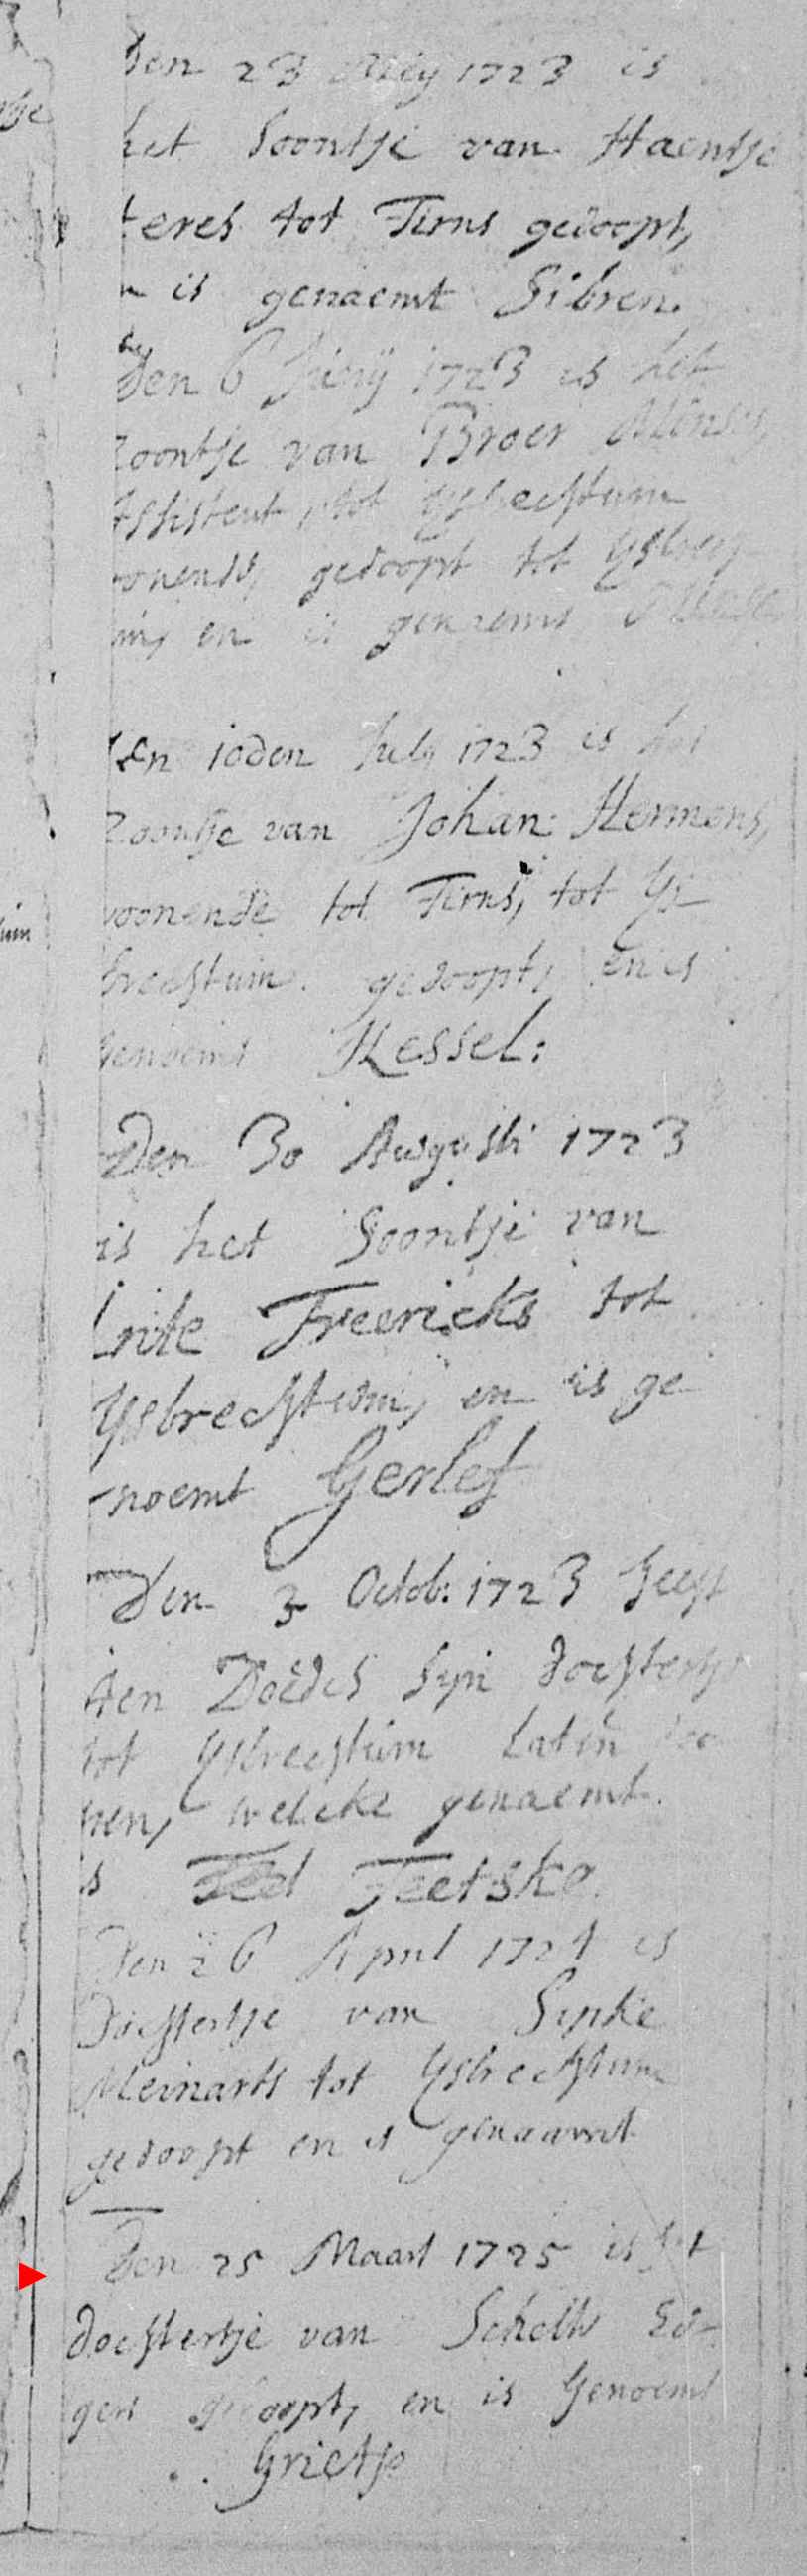 den 23 Meij 1723 is
het Soontje van Haentje
teres tot Tirns gedoopt,
is genaemt Sibren.
den 6 Junij 1723 is het
zoontje van Broer
Assistent, tot Ysbrechtum
woonende, gedoopt tot Ysbrech-
tum, en is genaemt
den 10den July 1723 is het
Zoontje van Johan Hermens,
woonende tot Tirns, tot Ys-
brechtum. gedoopt, en is
genoemt Hessel:
Den 30 Augusti 1723
is het Soontje van
Freericks tot
Ysbrechtum, en is ge-
noemt Gerlef
Den 3 Octob: 1723 heeft
Doedes Syn dochtertje
tot Ysbrechtum Laten doo
pen, welcke genaemt
is Teetske.
Den 26 April 1724 is
dochtertje van Sipke
Meinarts tot Ysbrechtum
gedoopt en is genaamt
Den 25 Maart 1725 is het
dochtertje van Schelte Ed-
gers gedoopt, en is Genoemt
Grietje